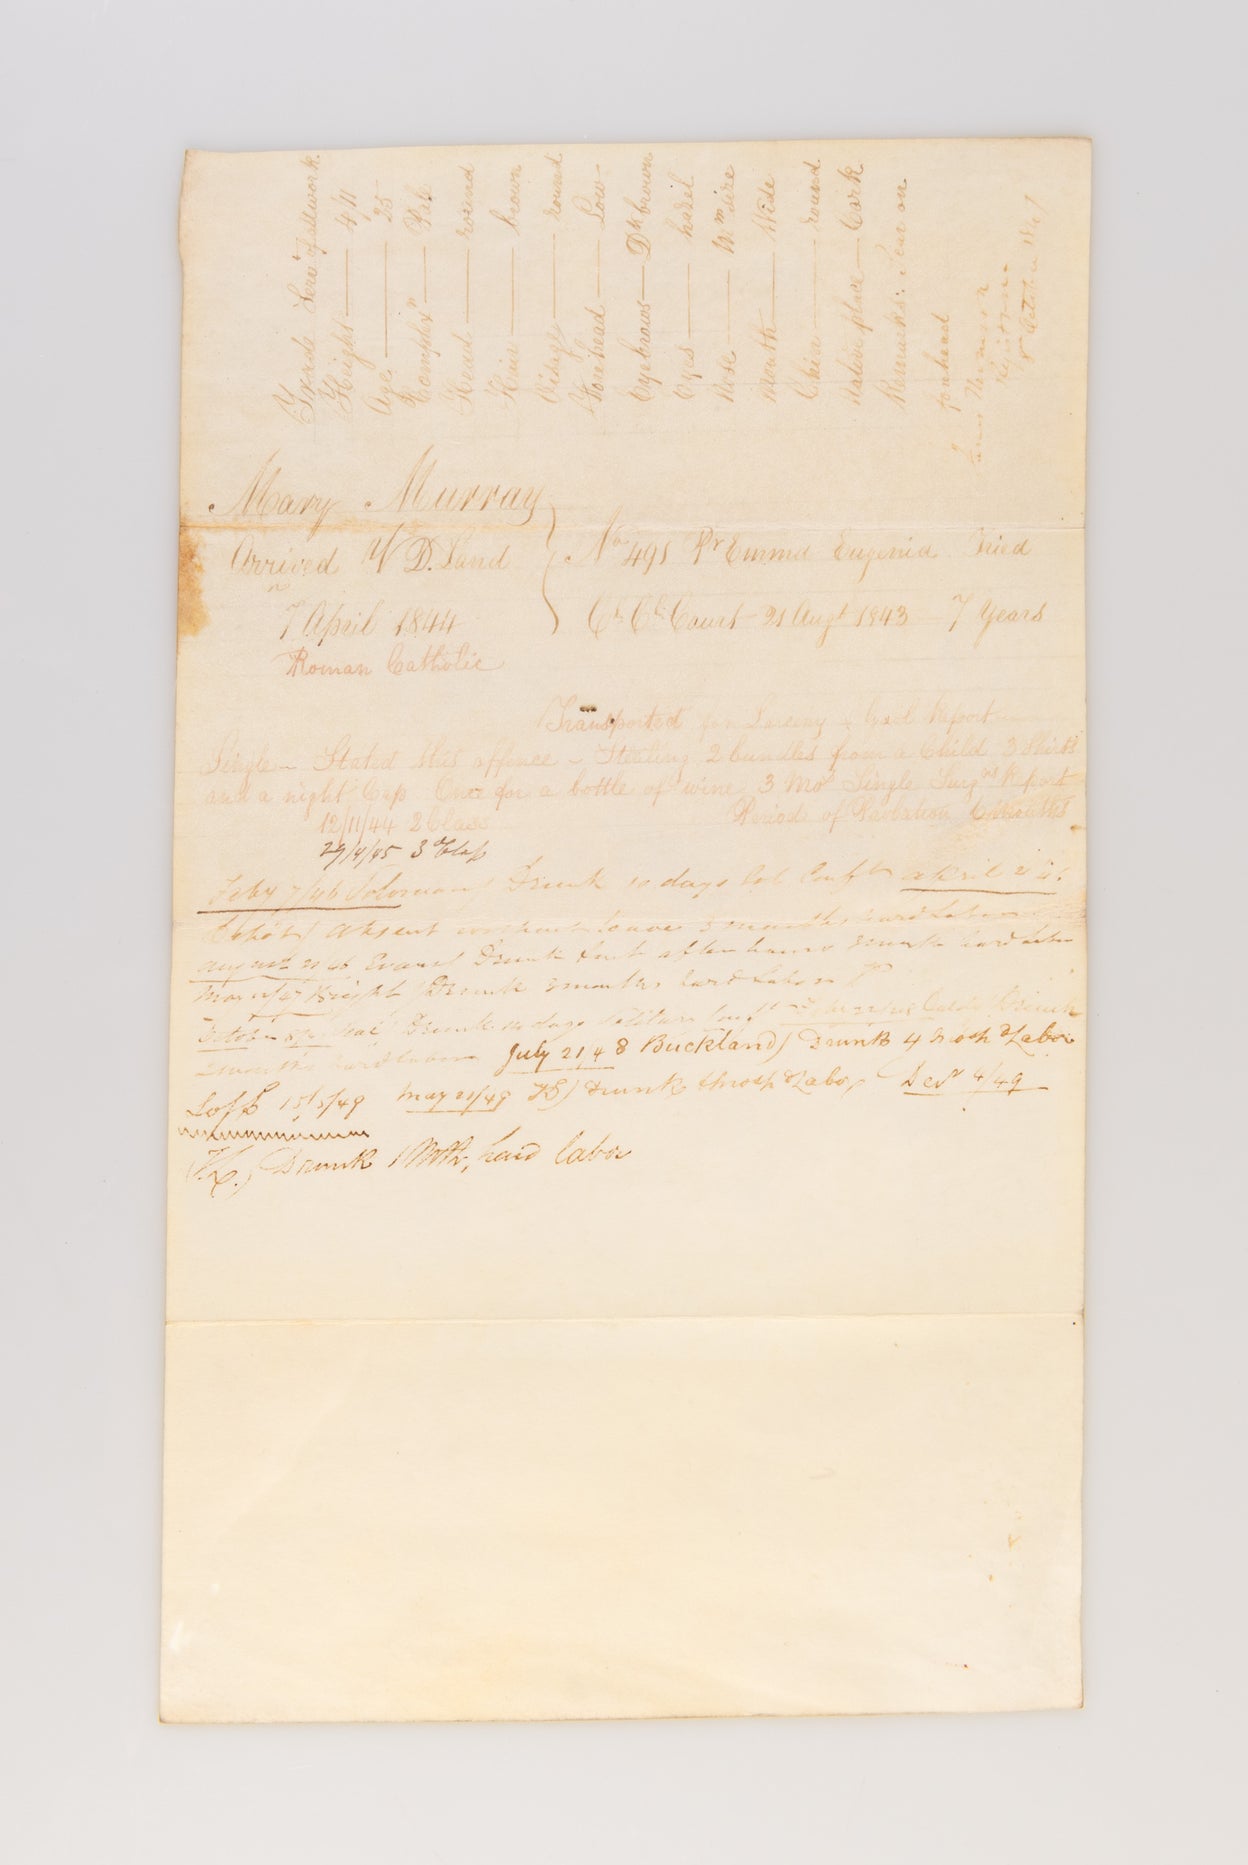 Trade Servt of allwork
Height 4/11
Age 25
Complexn Pale
Head round
Hair brown
Visage round
Forehead Low
Eyebrows Dk brown
Eyes hazel
Nose Mm size
Mouth Wide
Chin round
Native place Cork
Remarks: Scar on
forehead
Mary Murray
Arrived V D. Land } No 491 Pr Emma Eugenia Tried
7 April 1844 Cl Cl Court 21 Augt 1843 7 Years
Roman Catholic
Transported for Larceny Gaol Report
Single Stated this offence Stealing 2 bundles from a Child 3 Shirts
and a night Cap Once for a bottle of wine 3 Mos Single Surgns Report
12/11/44 2 Class Period of Probation 6 Months
29/4/45 3d Class
Feby 7/46 Solomon / Drunk 10 days Sol Conft April
absent without leave 3 months hard Labor
august 21/46 Drunk & out after hours hard Labor
May Bright / Drunk 2 months hard Labor
October Drunk 10 days solitary Conft Drunk
2 months hard labor July 21/48 Buckland / Drunk 4 hard Labor
15/5/49 May 21/49 Drunk Labor Decr 4/49
Drunk 1 Mth, hard labor